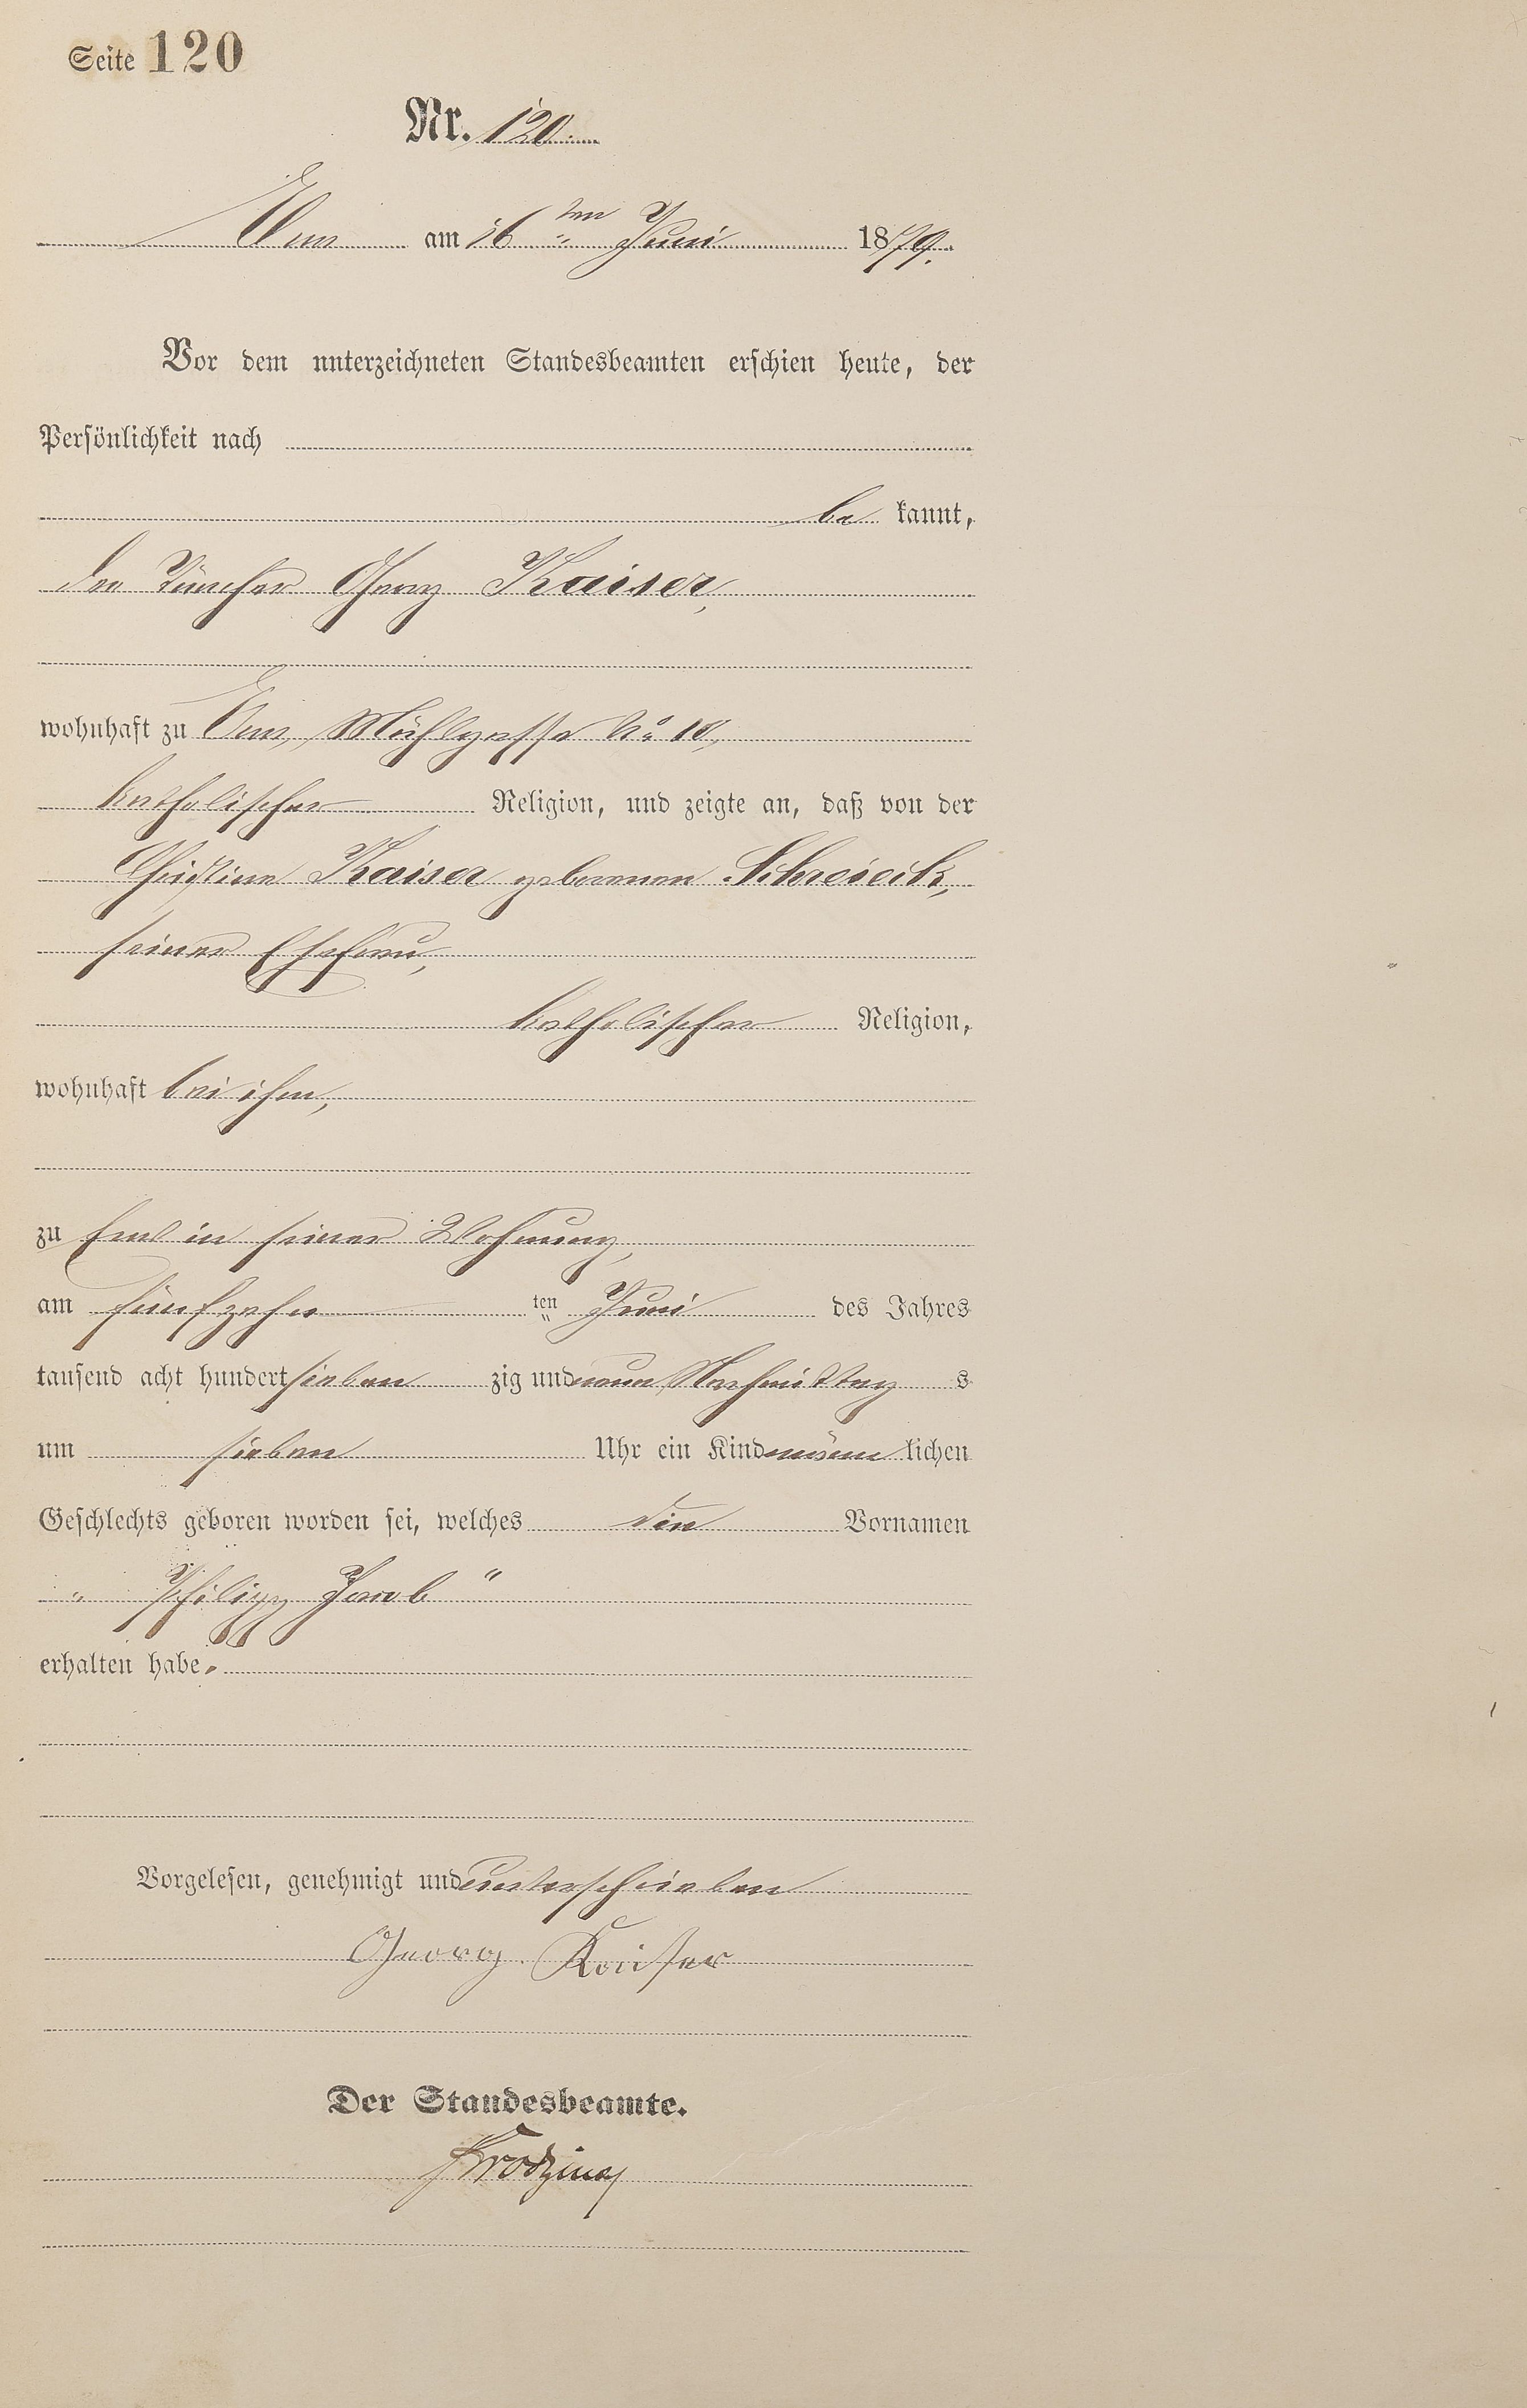 Seite 120
Nr. 120
Ems am 16 ten Juni 1879.
Vor dem unterzeichneten Standesbeamten erschien heute, der
Persönlichkeit nach
be kannt,
der Tüncher Georg Kaiser,
wohnhaft zu Ems, Mühlgasse No 10,
katholischer Religion, und zeigte an, daß von der
Christine Kaiser geborenen Schreieck,
seiner Ehefrau,
katholischer Religion,
wohnhaft bei ihm,
zu Ems in seiner Wohnung,
am fünfzehn ten Juni des Jahres
tausend acht hundert sieben zig und neun, Nachmittag s
um sieben Uhr ein Kind männ lichen
Geschlechts geboren worden sei, welches die Vornamen
„ Philipp Jacob “
erhalten habe.
Vorgelesen, genehmigt und unterschrieben
Georg Kaiser
Der Standesbeamte.